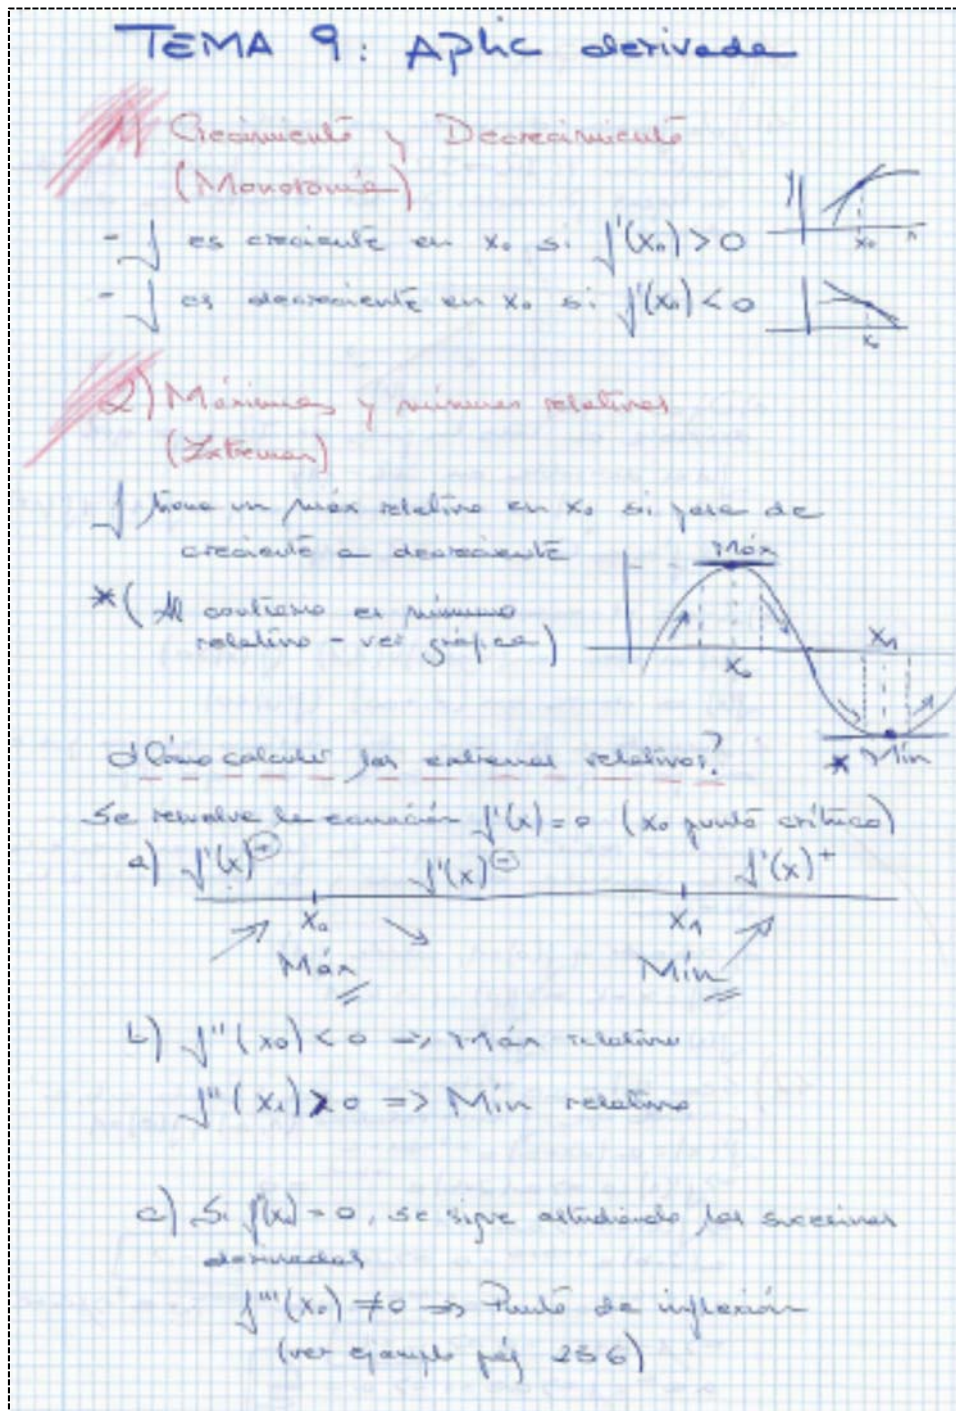 TEMA 9: Aplic derivada
1) Crecimiento y Decrecimiento
(Monotonía)
- f es creciente en x₀ si f'(x₀) > 0
y
x₀
- f es decreciente en x₀ si f'(x₀) < 0
x₀
2) Máximos y mínimos relativos
(Extremos)
f tiene un máx relativo en x₀ si pasa de
creciente a decreciente
Máx
*( Al contrario es mínimo
relativo - ver gráfica)
x₀
x₁
* Mín
¿Cómo calcular los extremos relativos?
Se resuelve la ecuación f'(x) = 0 (x₀ punto crítico)
a) f'(x)⊕ f'(x)⊖ f'(x)⁺
x₀ x₁
Máx Mín
b) f''(x₀) < 0 => Máx relativo
f''(x₁) > 0 => Mín relativo
c) Si = 0, se sigue estudiando las sucesivas
derivadas
f'''(x₀) ≠ 0 => Punto de inflexión
(ver ejemplo pág 256)